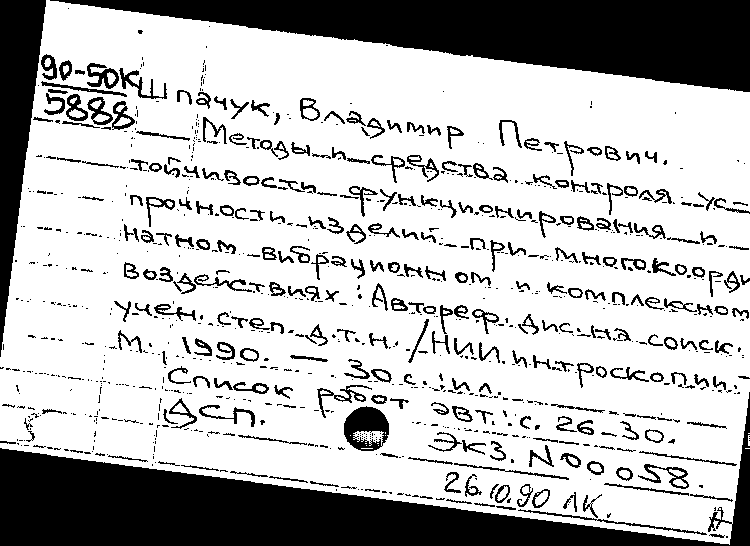 90-50К
5888
Шпачук, Владимир Петрович.
Методы и средства контроля ус-
тойчивости функционирования и
прочности изделий при многокоорди
натном вибрационном и комплексном
воздействиях : Автореф. дис. на соиск.
учен. степ. д.т.н. / НИИ интроскопии. -
М., 1990. — 30 с. : ил.
Список работ авт.: с. 26-30.
ДСП.
Экз. N00058.
26.10.90 ЛК.